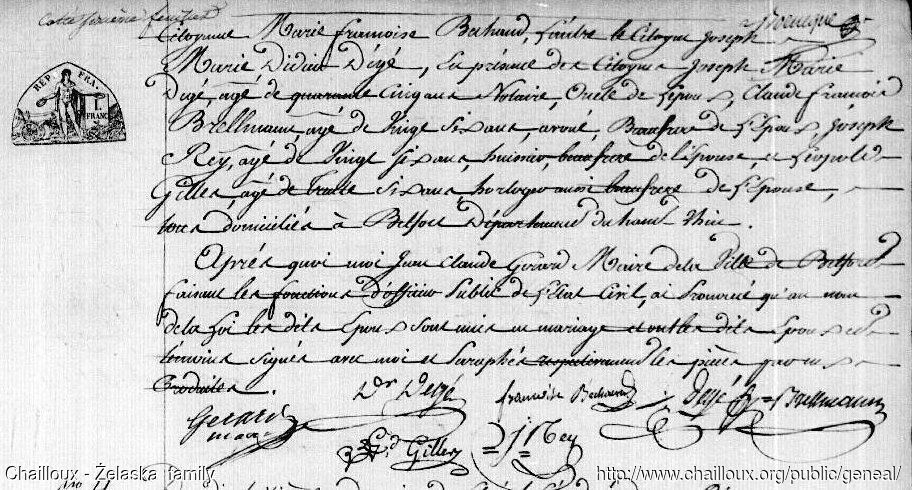 Cotté deuxième feuillet
Citoyenne Marie françoise Bechaud, Entre le Citoyen Joseph
Marie Didier Dégé, En présence des Citoyens Joseph Marie
Degé, agé de quarante Cinq ans Notaire, Oncle de l'époux, Claude françois
Brellmann, agé de Vingt Six ans, avoué, Beaufrere de l'Epoux, Joseph
Rey, agé de Vingt Six ans, huissier, beaufrere de l'épouse, et Léopold
Gilles, agé de trente Six ans, horloger aussi beaufrere de l'Epouse,
tous domiciliés à Belfort Département du haut Rhin.
REP. FRA.
1 FRANC
Après quoi moi Jean Claude Gerard Maire de la Ville de Belfort
faisant les fonctions d'officier Public de l'Etat Civil, ai Prononcé qu'au nom
de la Loi les dits Epoux sont unis en mariage et ont les dits Epoux et
témoins signés avec moi et Paraphés respectivement les pièces par eux
Produites.
Gerard
maire
Dr Degé
françoise Bechaud
Degé
Brellmann
Ld Gilles
J Rey
Chailloux - Żelaska family
http://www.chailloux.org/public/geneal/